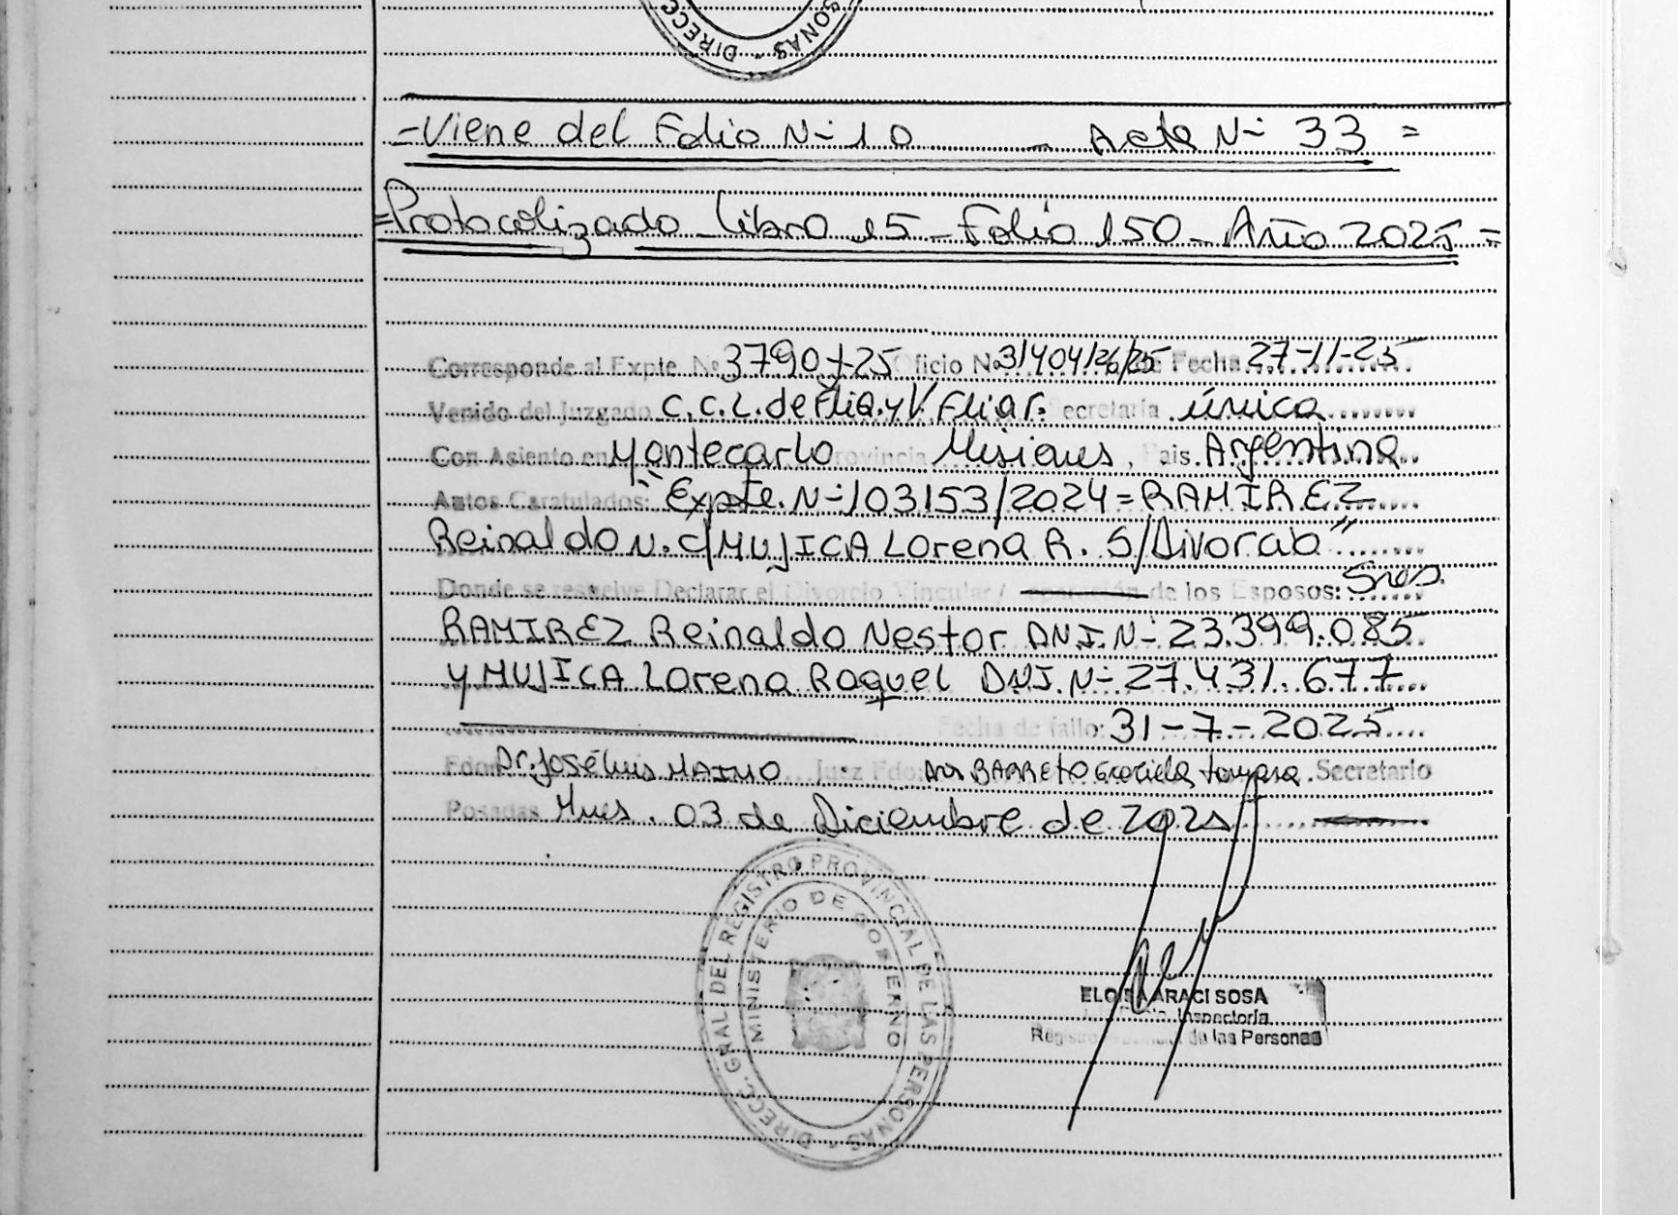 DIRECC SONAS
=Viene del Folio N- 10 - Acta N- 33 =
=Protocolizado - Libro 15 - Folio 150 - Año 2025 =
Corresponde al Expte. Nº 3790-J-25 Oficio Nº 31404/26/25 Fecha 27-11-25
Venido del Juzgado C.C.L. de Flia. y V. Fliar. Secretaría única
Con Asiento en Montecarlo Provincia Misiones, Pais. Argentina
Autos Caratulados: "Expte. N- 103153/2024 = RAMÍREZ
Reinaldo N. c/ MUJICA Lorena R. S/ Divorcio"
Donde se resuelve Declarar el Divorcio Vincular / separación de los Esposos: Sres.
RAMIREZ Reinaldo Nestor DNI. N- 23.399.085
y MUJICA Lorena Raquel DNI. N- 27.431.677
Fecha de fallo: 31-7-2025
Fdo. Dr. José Luis MAIMO Juez Fdo: Dra BARRETO Graciela Tomasa. Secretario
Posadas Mnes. 03 de Diciembre de 2025
DIRECC. GNAL. DEL REGISTRO PROVINCIAL DE LAS PERSONAS
MINISTERIO DE GOBIERNO
ELOISA ARACI SOSA
Inspectoría
de las Personas